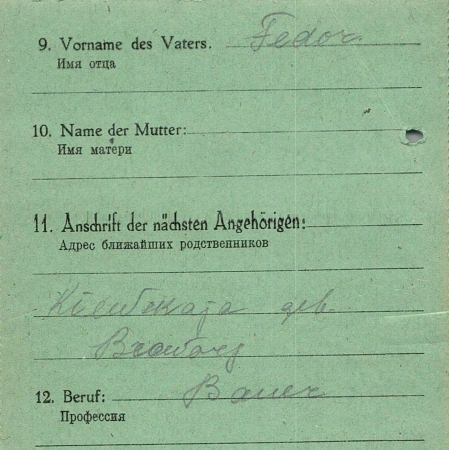 9. Vorname des Vaters. Fedor
Имя отца
10. Name der Mutter:
Имя матери
11. Anschrift der nächsten Angehörigen:
Адрес ближайших родственников
Kiewskaja geb.
Browarg
12. Beruf: Bauer
Профессия